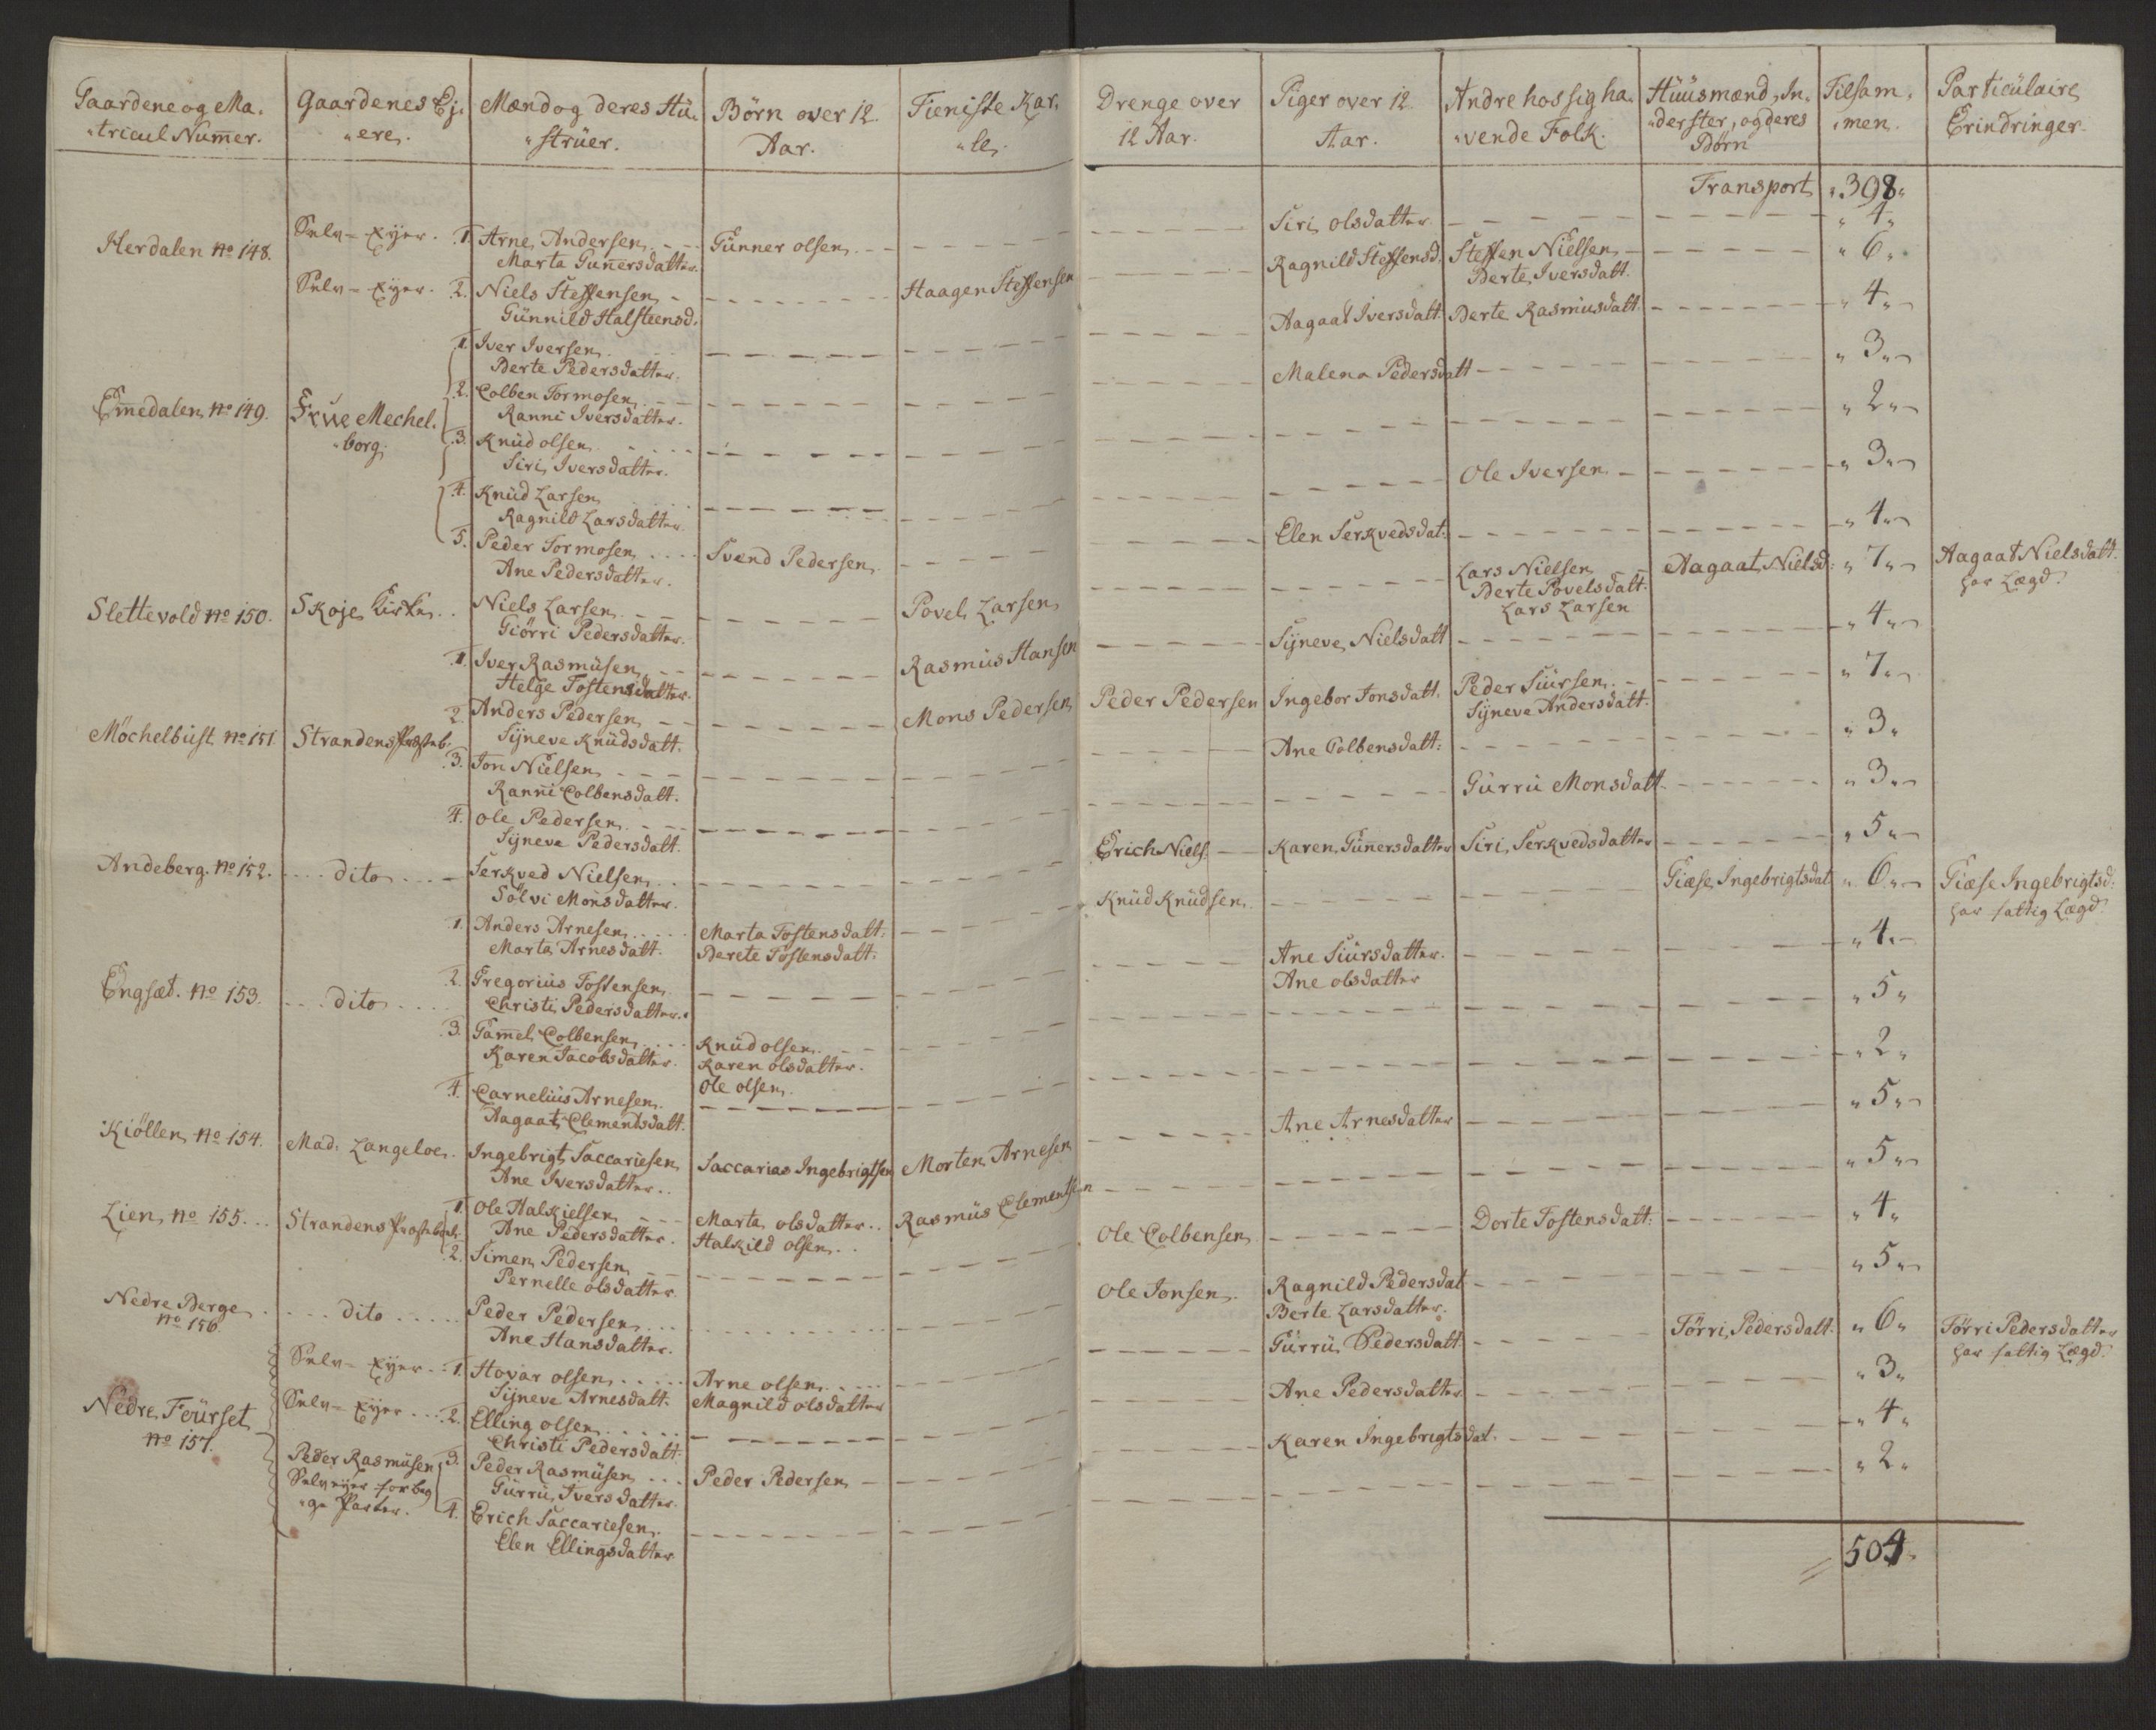 Gaardene og Ma-
tricul Nummer.
Gaardenes Ej-
ere.
Mænd og deres Hu-
strüer.
Börn over 12.
Aar.
Tieniste Kar-
le.
Drenge over
12 Aar.
Piger over 12
Aar.
Andre hos sig ha-
vende Folk.
Hüüsmænd, In-
derster, og deres
Börn
Tilsam-
men.
Particülaire
Erindringer.
Transport 398
Herdalen No 148. Selv-Eyer. 1. Arne Andersen Günner olsen Siri olsdatter 4
Marta Gunnersdatter.
Selv-Eyer. 2. Niels Steffensen Haagen Steffensen Ragnild Steffensd. Steffen Nielsen 6
Günnild Halsteensd. Berte Iversdatt.
1. Iver Iversen Aagaat Iversdatt. Berte Rasmusdatt. 4
Berte Pedersdatter.
2. Colben Tormosen Malena Pedersdatt 3
Emedalen No 149. Frue Mechel-
borg. Ranni Iversdatter.
3. Knüd olsen 2
Siri Iversdatter.
4. Knüd Larsen Ole Iversen 3
Ragnild Larsdatter.
5. Peder Tormosen Svend Pedersen Elen Serkvedsdat: 4
Ane Pedersdatter.
Slettevold No 150. Skoje Kirke Niels Larsen Povel Larsen Lars Nielsen Aagaat Nielsd: 7 Aagaat Nielsdatt.
Giörri Pedersdatter. Berte Povelsdatt. har Lægd.
Lars Larsen
1. Iver Rasmüsen Rasmüs Hansen Syneve Nielsdatt 4
Helge Tostensdatter.
2. Anders Pedersen Mons Pedersen Peder Pedersen Ingebor Jonsdatt. Peder Siürsen 7
Möchelbüst No 151. Strandens Præsteb: Syneve Knüdsdatt. Syneve Andersdatt.
3. Jon Nielsen Ane Colbensdatt: 3
Ranni Colbensdatt.
4. Ole Pedersen Gurru Monsdatt. 3
Syneve Pedersdatt.
Andeberg. No 152. dito Serkved Nielsen Erich Niels: Karen Gunersdatter Siri Serkvedsdatter 5
Sölvi Monsdatter.
1. Anders Arnesen Marta Tostensdatt: Knüd Knüdsen Giæse Ingebrigtsdat 6 Giæse Ingebrigtsd:
Marta Arnesdatt. Berete Tostensdatt. har fattig Lægd.
Engsæt. No 153. dito 2. Gregorius Tostensen Ane Siürsdatter. 4
Christi Pedersdatter. Ane olsdatter
3. Gamel Colbensen Knüd olsen 5
Karen Jacobsdatter. Karen olsdatter.
Ole olsen
4. Carnelius Arnesen 2
Aagaat Clementsdatt.
Kiöllen No 154. Mad: Langeloe. Ingebrigt Saccariesen Saccarias Ingebrigtsen Morten Arnesen Ane Arnesdatter 5
Ane Iversdatter.
Lien No 155. Strandens Præstebol 1. Ole Halkielsen Marta olsdatter Rasmüs Clementsen 5
Ane Pedersdatter. Halkild olsen
2. Simen Pedersen Ole Colbensen Dorte Tostensdatt: 4
Pernelle olsdatter
Nedre Berge
No 156. dito Peder Pedersen Ole Jonsen Ragnild Pedersdat 5
Ane Hansdatter. Berte Larsdatter.
Selv-Eyer 1. Hovar olsen Arne olsen Gürru Pedersdatt. Törri Pedersdatt. 6 Törri Pedersdatter
Syneve Arnesdatt. Magnild olsdatter har fattig Lægd.
Nedre Feürset
No 157. Selv-Eyer 2. Elling olsen Ane Pedersdatter 3
Christi Pedersdatt.
Peder Rasmüsen 3. Peder Rasmüsen Peder Pedersen Karen Ingebrigtsdat. 4
Selveyer for beg-
ge Parter. Gürru Iversdatter.
4. Erich Saccariesen 2
Elen Ellingsdatter
504